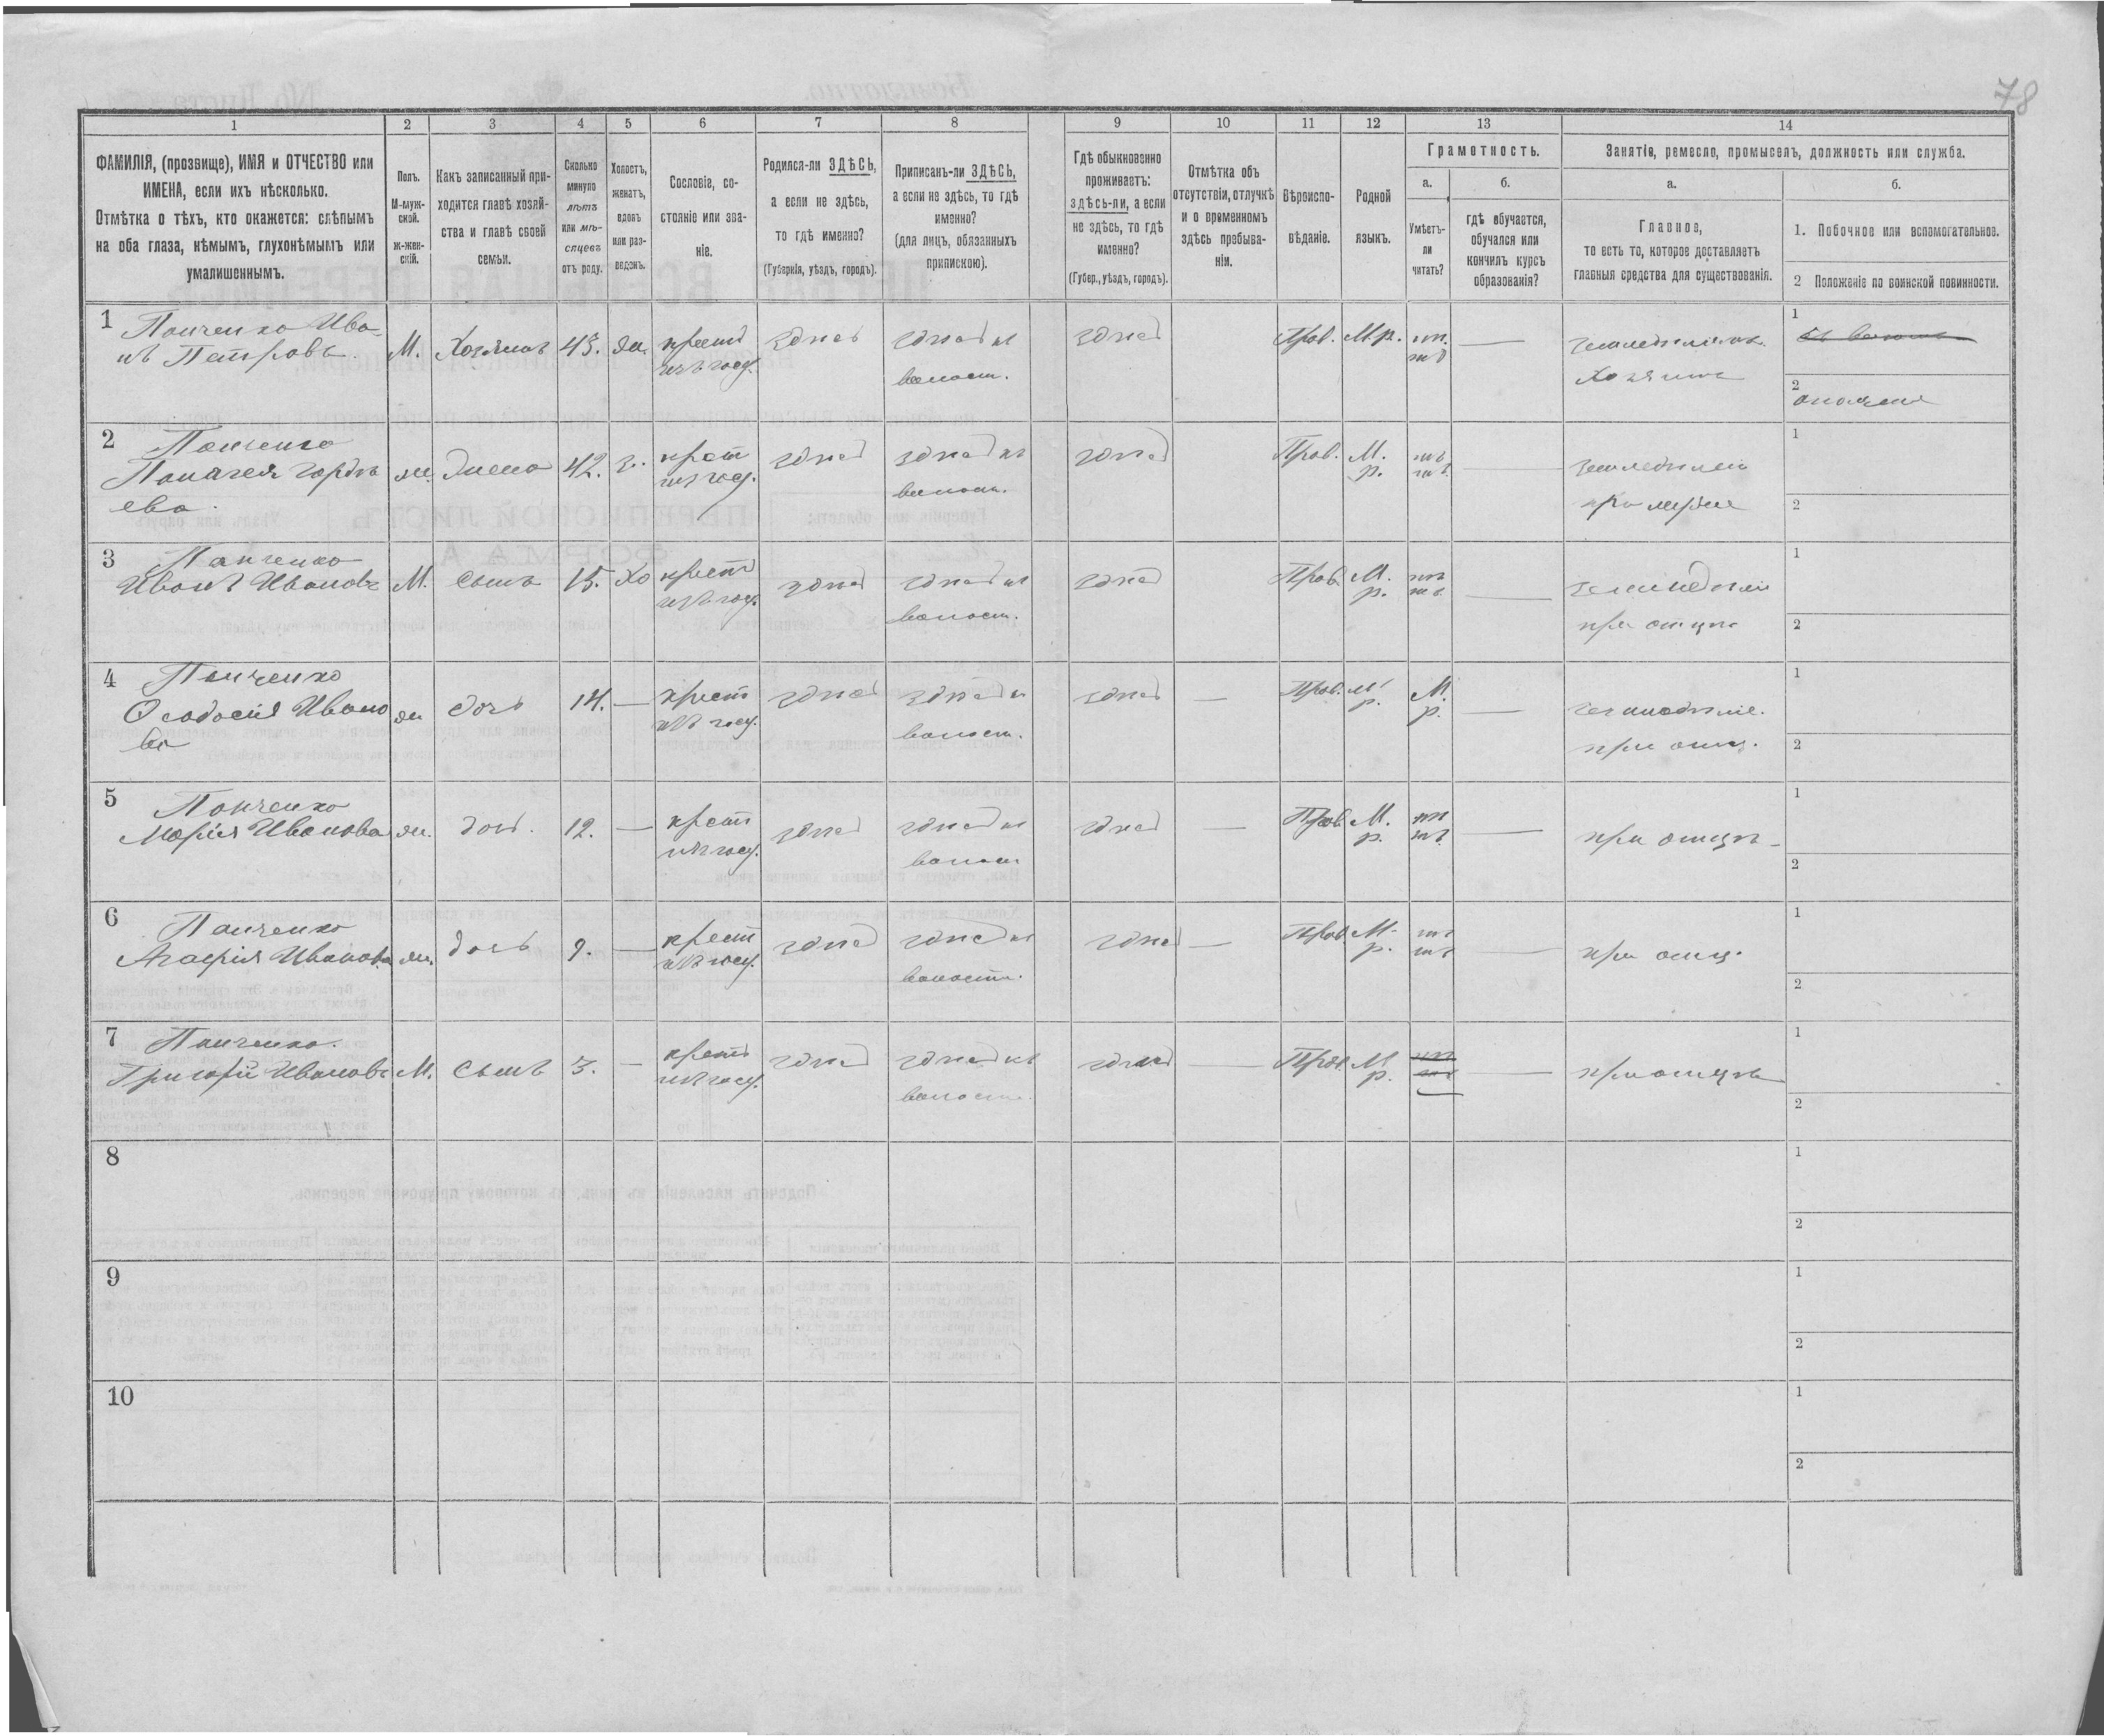 78
1
2
3
4
5
6
7
8
9
10
11
12
13
14
ФАМИЛІЯ, (прозвище), ИМЯ и ОТЧЕСТВО или
ИМЕНА, если ихъ нѣсколько.
Отмѣтка о тѣхъ, кто окажется: слѣпымъ
на оба глаза, нѣмымъ, глухонѣмымъ или
умалишеннымъ.
Полъ.
М-муж-
ской.
ж-жен-
скій.
Какъ записанный при-
ходится главѣ хозяй-
ства и главѣ своей
семьи.
Сколько
минуло
лѣтъ
или мѣ-
сяцевъ
отъ роду.
Холостъ,
женатъ,
вдовъ
или раз-
веденъ.
Сословіе, со-
стояніе или зва-
ніе.
Родился-ли ЗДѢСЬ,
а если не здѣсь,
то гдѣ именно?
(Губернія, уѣздъ, городъ).
Приписанъ-ли ЗДѢСЬ,
а если не здѣсь, то гдѣ
именно?
(для лицъ, обязанныхъ
припискою).
Гдѣ обыкновенно
проживаетъ:
здѣсь-ли, а если
не здѣсь, то гдѣ
именно?
(Губер., уѣздъ, городъ).
Отмѣтка объ
отсутствіи, отлучкѣ
и о временномъ
здѣсь пребыва-
ніи.
Вѣроиспо-
вѣданіе.
Родной
языкъ.
Грамотность.
а.
б.
Умѣетъ-
ли
читать?
гдѣ обучается,
обучался или
кончилъ курсъ
образованія?
Занятіе, ремесло, промыселъ, должность или служба.
а.
б.
Главное,
то есть то, которое доставляетъ
главныя средства для существованія.
1. Побочное или вспомогательное.
2 Положеніе по воинской повинности.
1
Панченко Ива-
нъ Петровъ.
М.
Хозяинъ
43.
крест
изъ госуд.
здѣсь
здѣсь къ
волост.
здѣсь
Прав.
М.р.
нѣ
тъ
хозяинъ
1
2
2
Панченко
Пелагея Гордѣ
ева.
ж.
жена
42.
з.
крест
изъ госуд.
здѣсь
здѣсь къ
волост.
здѣсь
Прав.
М.
р.
нѣ
тъ
при мужѣ
1
2
3
Панченко
Иванъ Ивановъ
М.
сынъ
15.
Хо
крест
изъ госуд.
здѣсь
здѣсь къ
волост.
здѣсь
Прав
М.
р.
нѣ
тъ
при отцѣ
1
2
4
Панченко
Ѳеодосія Ивано
ва
ж
дочь
14.
—
крест
изъ госуд.
здѣсь
здѣсь къ
волост.
здѣсь
—
Прав.
М.
р.
М.
р.
при отц.
1
2
5
Панченко
Марія Иванова
ж.
дочь.
12.
—
крест
изъ госуд.
здѣсь
здѣсь къ
волост
здѣсь
—
Прав
М.
р.
нѣ
тъ
при отцѣ
1
2
6
Панченко
Агафія Иванова
ж.
дочь
9.
—
крест
изъ госуд.
здѣсь
здѣсь къ
волост.
здѣсь
—
Прав
М.
р.
нѣ
тъ
при отц.
1
2
7
Панченко.
Григорій Ивановъ
М.
сынъ
3.
—
крест
изъ госуд.
здѣсь
здѣсь къ
волост.
здѣсь
—
Прав.
М
р.
нѣ
тъ
при отцѣ
1
2
8
1
2
9
1
2
10
1
2